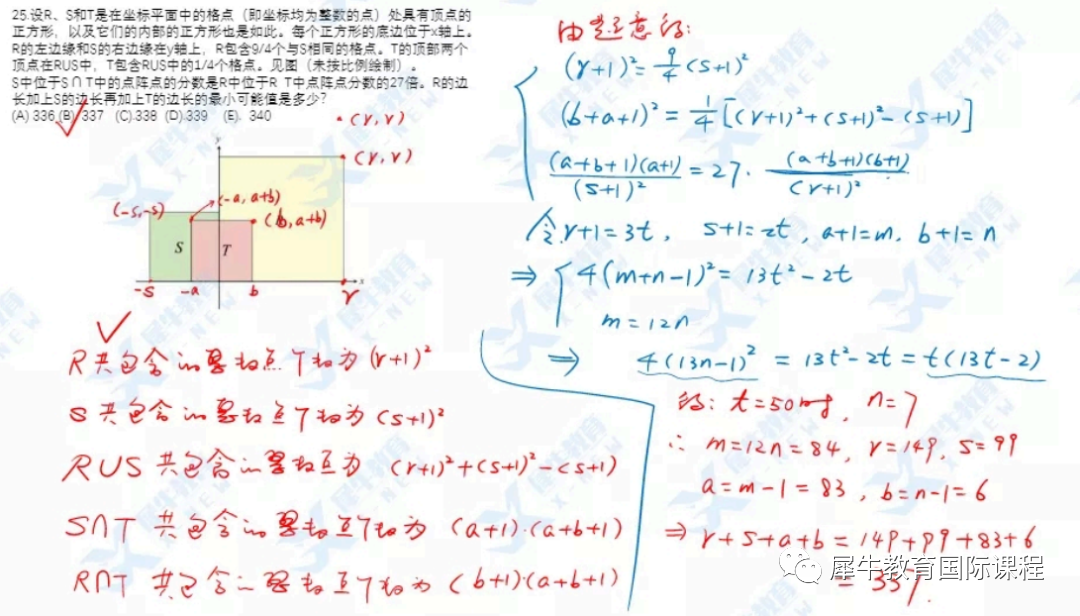 25.设R、S和T是在坐标平面中的格点（即坐标均为整数的点）处具有顶点的
正方形，以及它们的内部的正方形也是如此。每个正方形的底边位于x轴上。
R的左边缘和S的右边缘在y轴上，R包含9/4个与S相同的格点。T的顶部两个
顶点在RUS中，T包含RUS中的1/4个格点。见图（未按比例绘制）。
S中位于S∩T中的点阵点的分数是R中位于R T中点阵点分数的27倍。R的边
长加上S的边长再加上T的边长的最小可能值是多少?
(A) 336 (B) 337 (C).338 (D).339 (E). 340
(r,r)
y
(r,r)
(-a, a+b)
(-s,-s)
(b, a+b)
S
T
-s
-a
b
r
x
R共包含的
点个数为(r+1)²
S共包含的
点个数为(s+1)²
RUS共包含的
为 (r+1)²+(s+1)²-(s+1)
S∩T 共包含的
点个数为 (a+1)·(a+b+1)
R∩T 共包含的
点个数为 (b+1)·(a+b+1)
由题意得:
(r+1)²=9/4(s+1)²
(b+a+1)²=1/4[(r+1)²+(s+1)²-(s+1)]
(a+b+1)(a+1)/(s+1)²=27·(a+b+1)(b+1)/(r+1)²
令r+1=3t, s+1=2t, a+1=m, b+1=n
⇒ 4(m+n-1)²=13t²-2t
m=12n
⇒ 4(13n-1)²=13t²-2t=t(13t-2)
得: t=50时, n=7
∴ m=12n=84, r=149, s=99
a=m-1=83, b=n-1=6
⇒ r+s+a+b=149+99+83+6
=337.
犀牛教育国际课程
犀牛教育
X-NEW